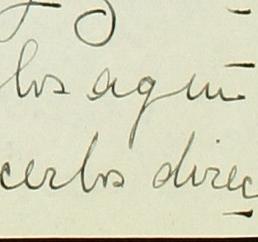 los agui
cerlos direc